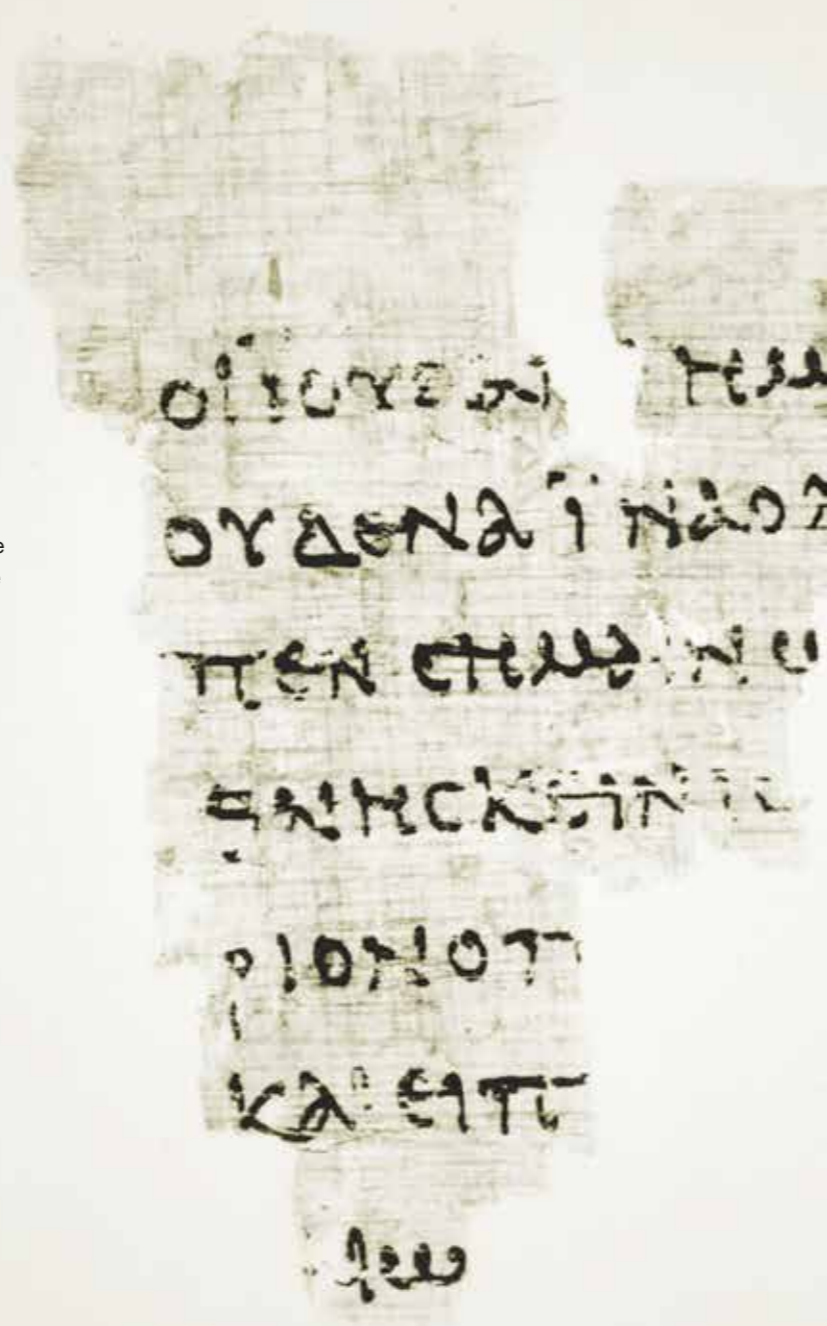 ΟΙΪΟΥΔΑΙ ΗΜ
ΟΥΔΕΝΑΪΝΑΟΛ
ΠΕΝCΗΜΑΙΝΩ
ΘΝΗCΚΕΙΝΙC
ΡΙΟΝΟΠ
ΚΑΙΕΙΠ